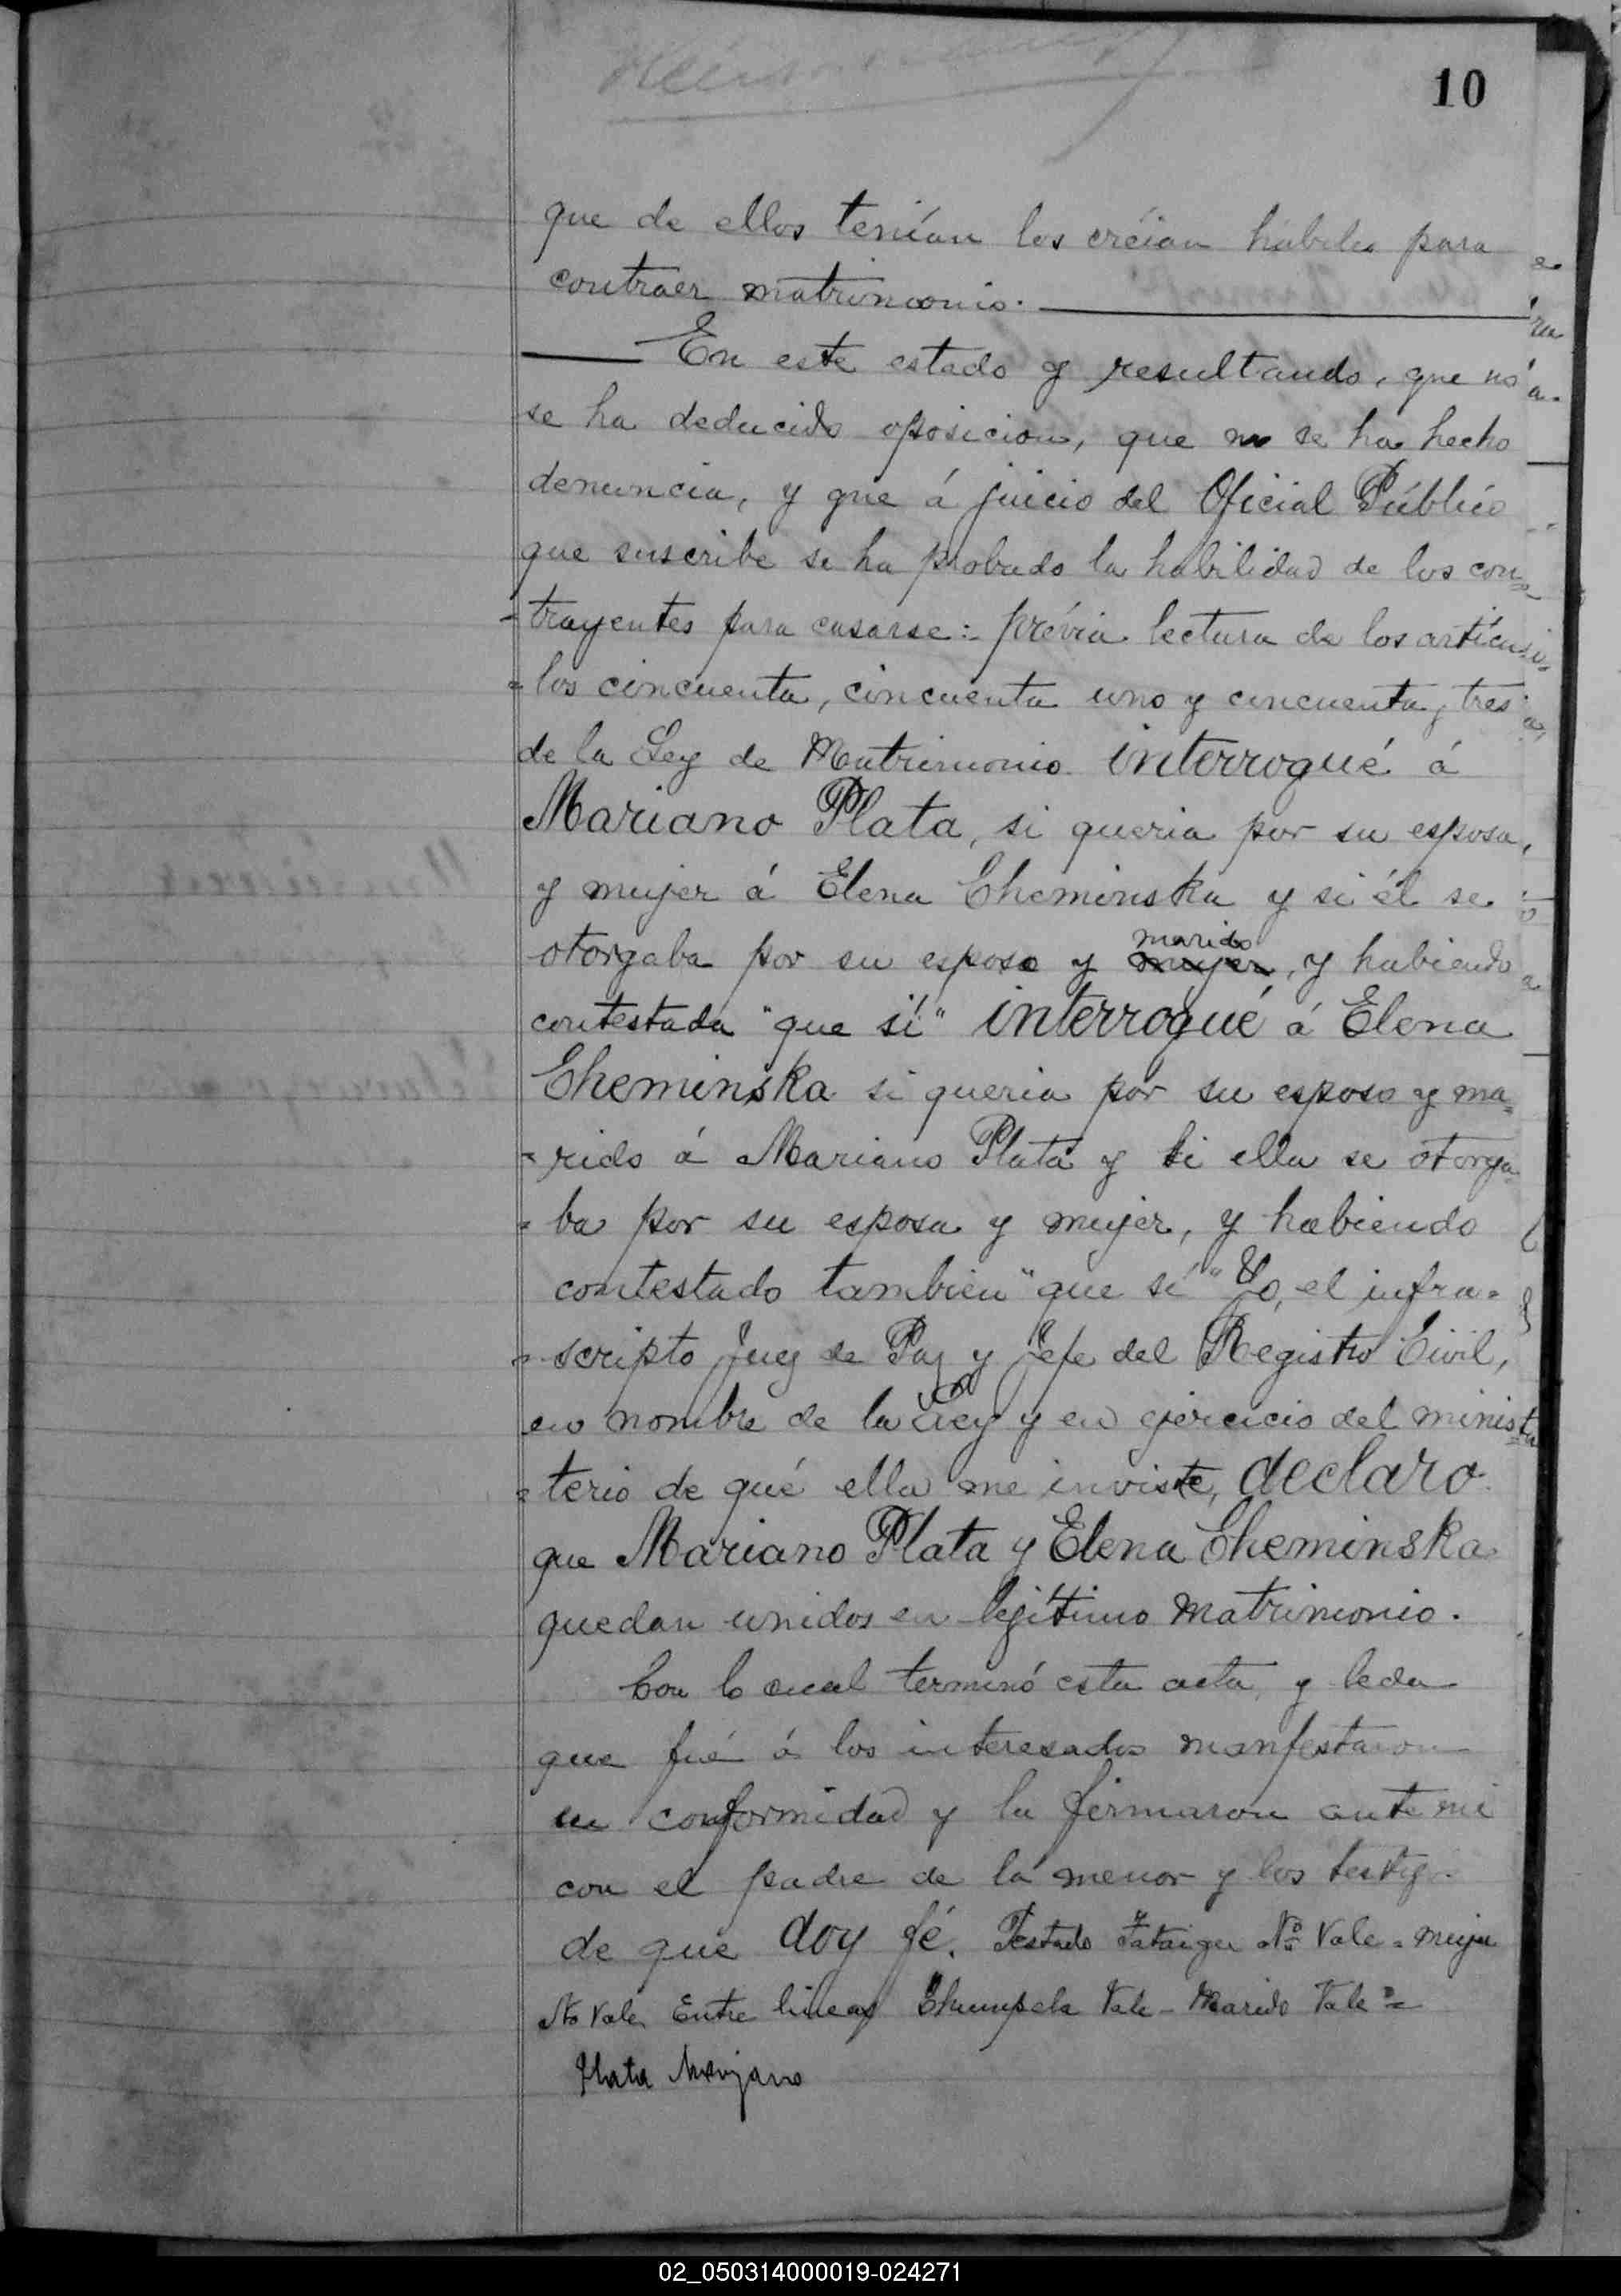 10
que de ellos tenían los créian hábiles para
contraer matrimonio.
En este estado y resultando, que no
se ha deducido oposicion, que no se ha hecho
denuncia, y que á juicio del Oficial Público
que suscribe se ha probado la habilidad de los con=
-trayentes para casarse: prévia lectura de los artícu
=los cincuenta, cincuenta uno y cincuenta y tres
de la Ley de Matrimonio interrogué á
Mariano Plata, si queria por su esposa,
y mujer á Elena Cheminska y si él se
marido
otorgaba por su esposo y mujer, y habiendo
contestada "que sí" interrogué á Elena
Cheminska si queria por su esposo y ma=
=rido á Mariano Plata y si ella se otorga=
=ba por su esposa y mujer, y habiendo
contestado tambien "que sí" Yo, el infra=
=scripto Juez de Paz y Jefe del Registro Civil,
en nombre de la Ley y en ejercicio del minis=
=terio de qué ella me inviste, declaro
que Mariano Plata y Elena Cheminska
quedan unidos en lejítimo matrimonio.
Con lo cual terminó esta acta y leda
que fué á los interesados manfestaron
su conformidad y la firmaron ante mi
con el padre de la menor y los testig
de que doy fé. Testado No Vale = mujer
No Vale Entre lineas Vale - Marido Vale=
Plata Marjano
02_050314000019-024271